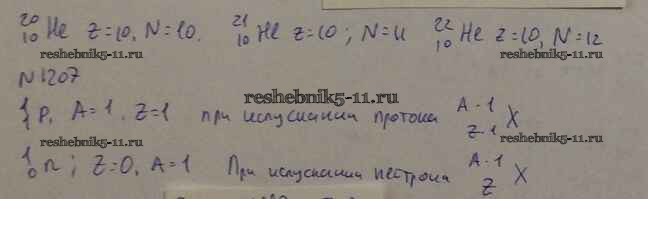 ²⁰₁₀Ne Z=10, N=10. ²¹₁₀Ne Z=10; N=11 ²²₁₀Ne Z=10, N=12
reshebnik5-11.ru reshebnik5-11.ru
N1207
reshebnik5-11.ru
¹₁P, A=1. Z=1 при испускании протона ᴬ⁻¹_Z-1 X
reshebnik5-11.ru reshebnik5-11.ru
¹₀n; Z=0, A=1 При испускании нейтрона ᴬ⁻¹_Z X